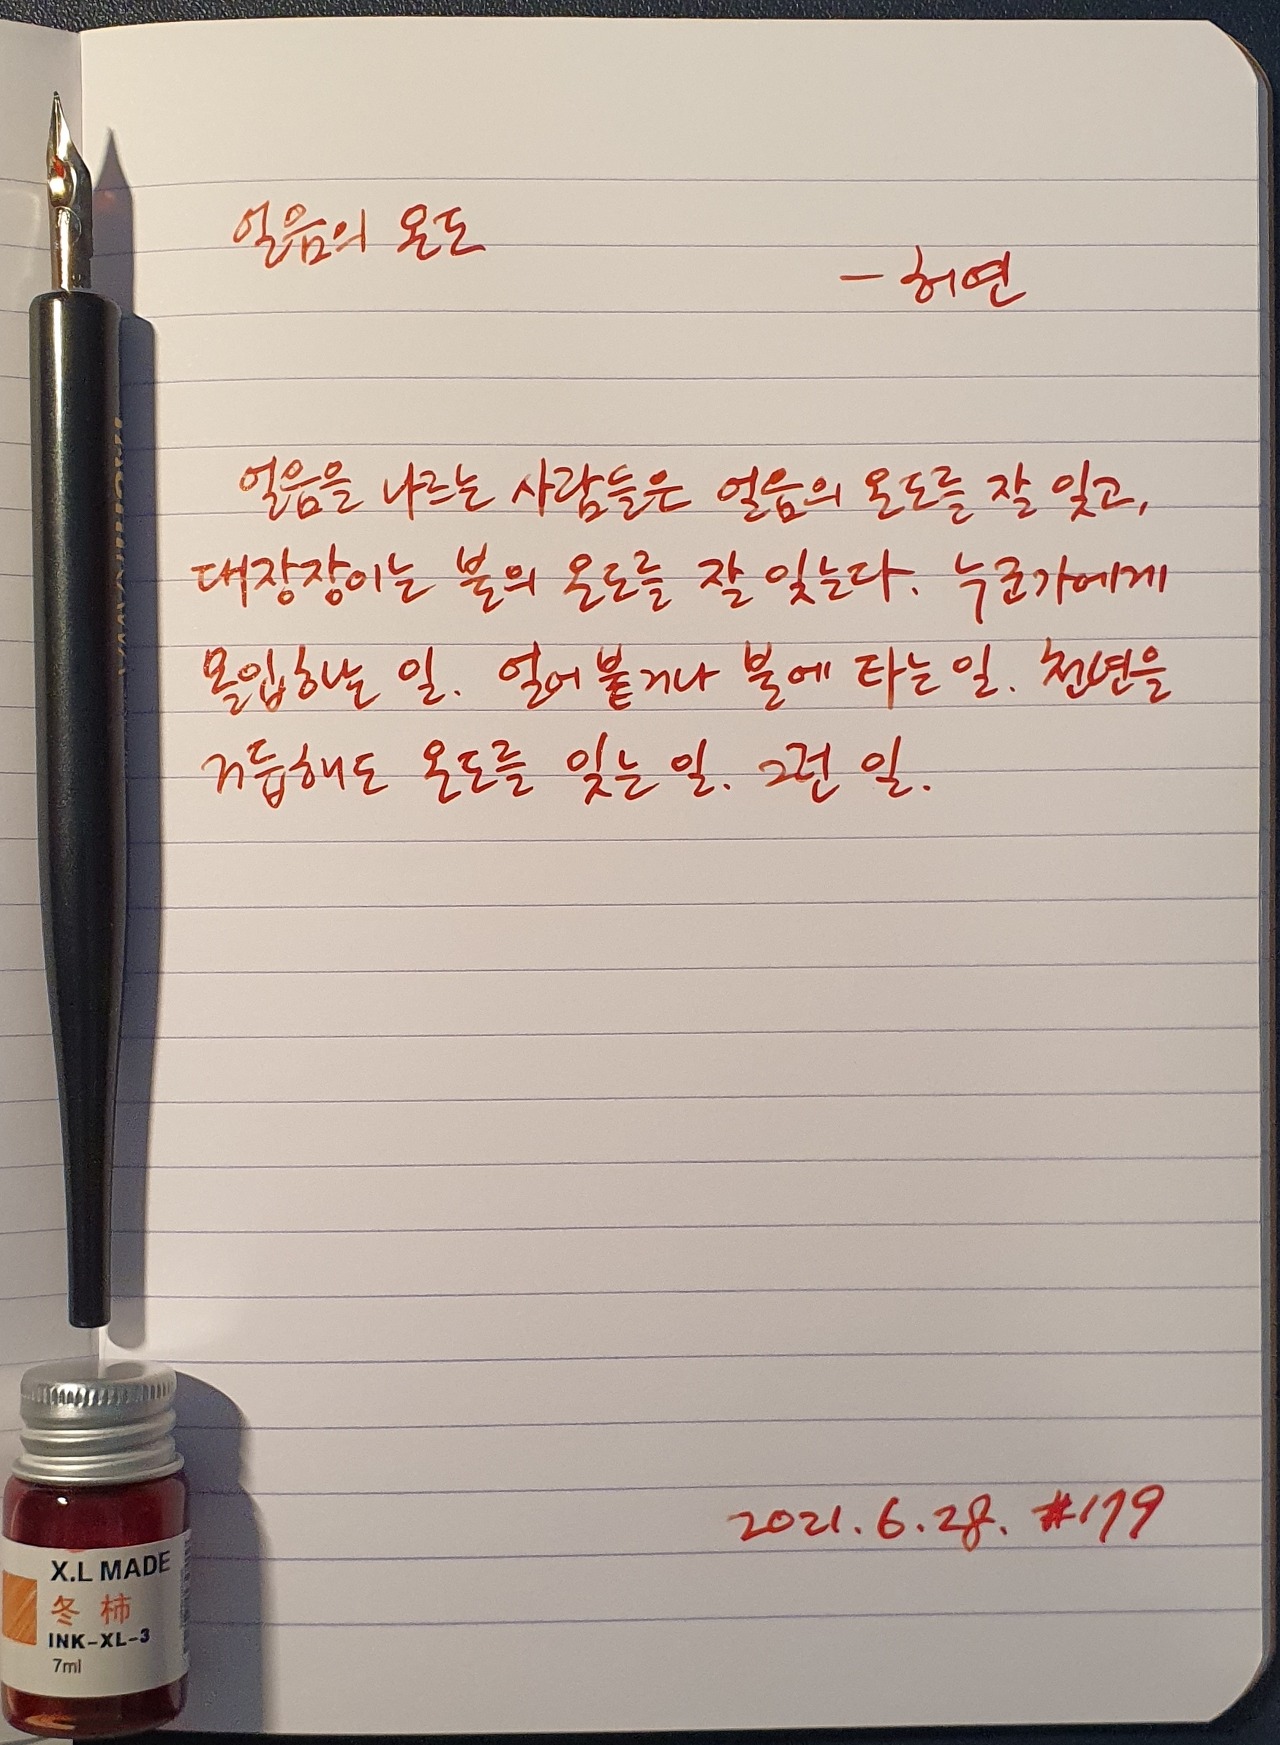 얼음의 온도
- 허연
얼음을 나르는 사람들은 얼음의 온도를 잘 잊고,
대장장이는 불의 온도를 잘 잊는다. 누군가에게
몰입하는 일. 얼어붙거나 불에 타는 일. 천년을
거듭해도 온도를 잊는 일. 그런 일.
2021. 6. 28. #179
X.L MADE
冬 柿
INK-XL-3
7ml